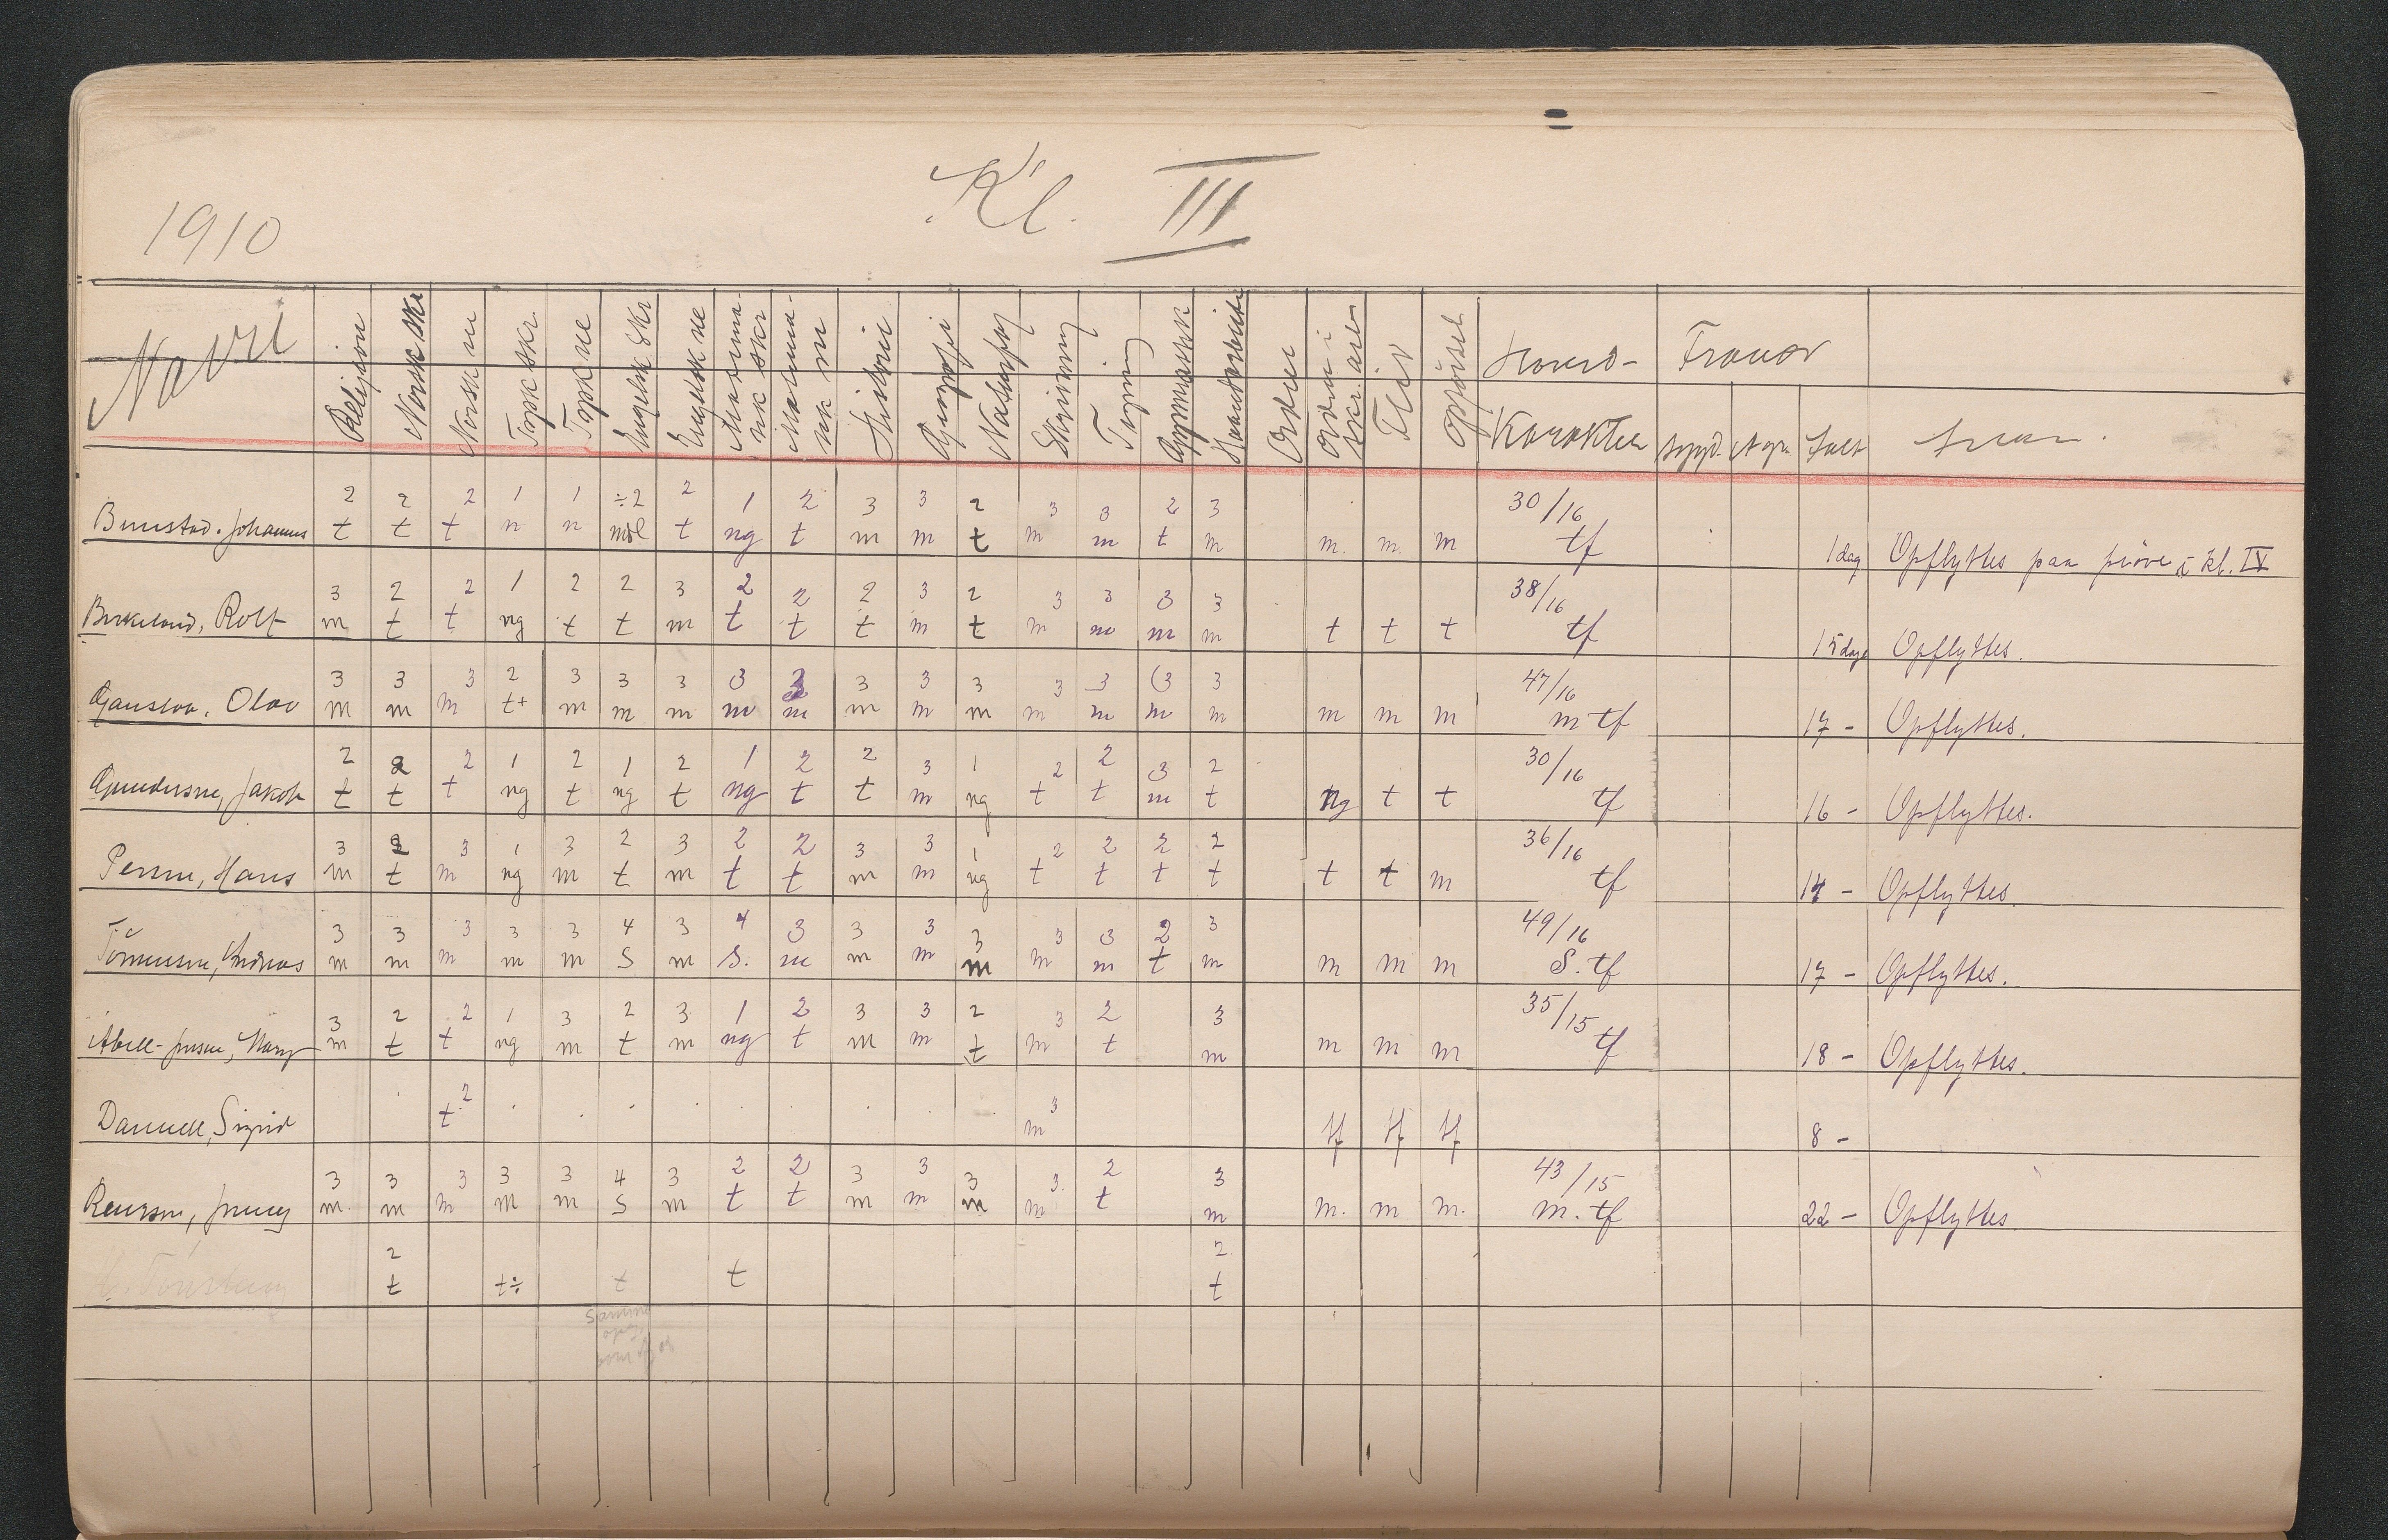 1910 Kl. III
Navn Religion Norsk skr Norsk m Tysk skr. Tysk m Engelsk skr Engelsk m Matema- tik skr Matema- tik m Historie Geografi Naturfag Skrivning Tegning Gymnastik Haandarbeide Orden Orden i skr. arb Flid Opførsel Hoved- Karakter Fravær sygd. Ialt
2 2 2 1 1 ÷2 2 1 2 3 3 2 3 3 2 3 30/16
Johannes t t t n n mdl t ng t m m t m m t m m. m. m tf 1 dag Opflyttes paa prøve i kl. IV
3 2 2 1 2 2 3 2 2 2 3 2 3 3 3 3 38/16
Birkeland, Rolf m t t ng t t m t t t m t m m m m t t t tf 15 dage Opflyttes.
3 3 3 2 3 3 3 3 3 3 3 3 3 3 3 3 47/16
Olav m m m t+ m m m m m m m m m m m m m m m m tf 17 - Opflyttes.
2 2 2 1 2 1 2 1 2 2 3 1 2 2 3 2 30/16
Gundersen, Jakob t t t ng t ng t ng t t m ng t t m t ng t t tf 16 - Opflyttes.
3 2 3 1 3 2 3 2 2 3 3 1 2 2 2 2 36/16
Hans m t m ng m t m t t m m ng t t t t t t m tf 14 - Opflyttes.
3 3 3 3 3 4 3 4 3 3 3 3 3 3 2 3 49/16
Tönnesen, Andreas m m m m m S m S. m m m m m m t m m m m S. tf 17 - Opflyttes.
3 2 2 1 3 2 3 1 2 3 3 2 3 2 3 35/15
Abell-Jensen, Mary m t t ng m t m ng t m m t m t m m m m tf 18 - Opflyttes.
2 3
Sigrid t m tf tf tf 8 -
3 3 3 3 3 4 3 2 2 3 3 3 3 2 3 43/15
Jenny m m m m m S m t t m m m m t m m. m m. m. tf 22 - Opflyttes
2 2
t t÷ t t t
Samme